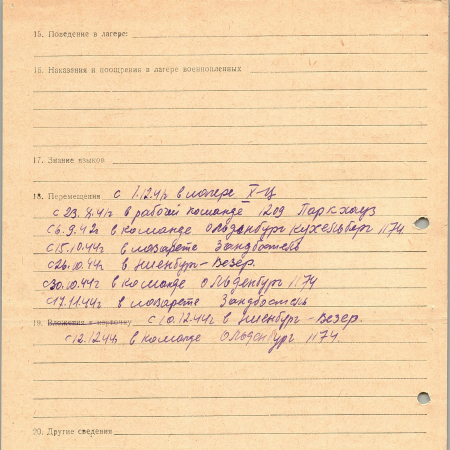 15. Поведение в лагере:
16. Наказания и поощрения в лагере военнопленных
17. Знание языков
18. Перемещения с 1.12.41г в лагере X-Ц
с 23. X.41г в рабочей команде 1209 Паркхауз
с 6.9.42г в команде Ольденбург Кухельберг 1174
с 15.10.44г в лазарете Зандбостель
с 26.10.44г в Ниенбург-Везер.
с 30.10.44г в команде Ольденбург 1174
с 17.11.44г в лазарете Зандбостель
19. Вложения в карточку с 10.12.44г в Ниенбург-Везер.
с 12.12.44г в команде Ольденбург 1174.
20. Другие сведения